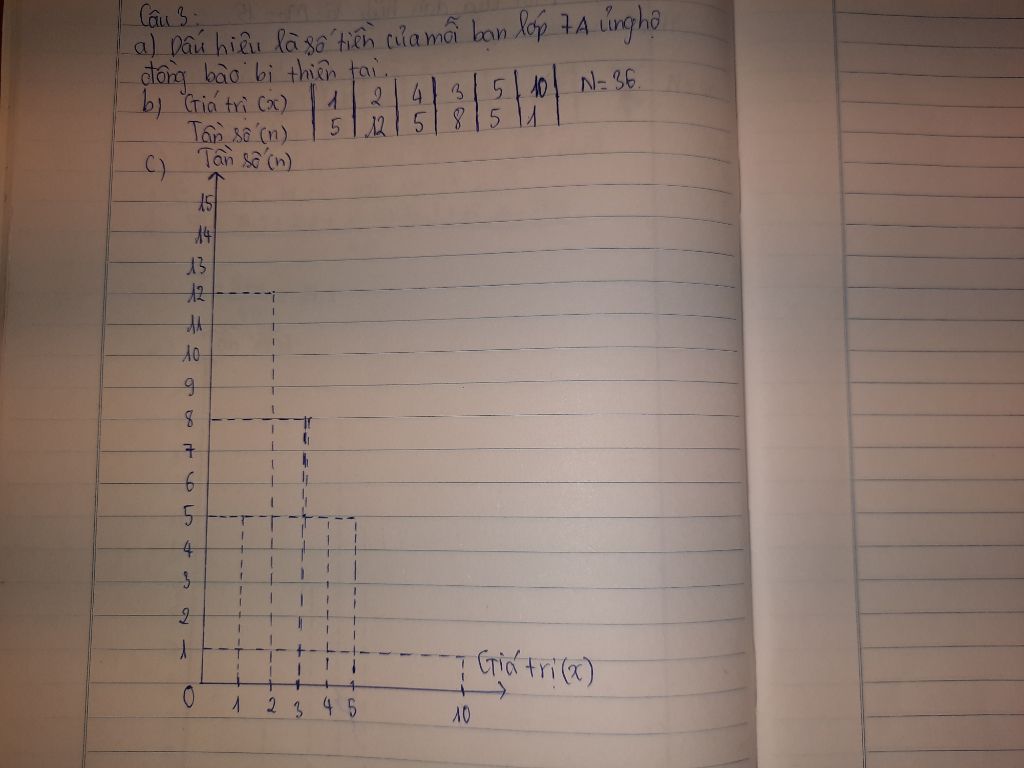 Câu 3:
a) Dấu hiệu là số tiền của mỗi bạn lớp 7A ủng hộ
đồng bào bị thiên tai.
b) Giá trị (x) 1 2 4 3 5 10 N= 36
Tần số (n) 5 12 5 8 5 1
c) Tần số (n)
15
14
13
12
11
10
9
8
7
6
5
4
3
2
1
Giá trị (x)
0 1 2 3 4 5 10